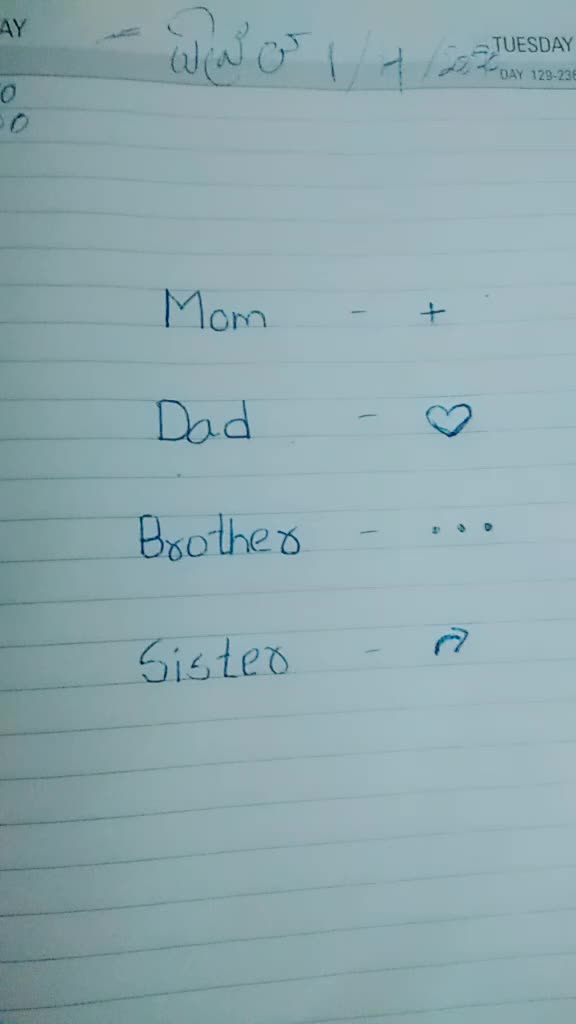 AY
TUESDAY
DAY 129-236
0
00
Mom - +
Dad - ♡
Brother - ...
Sister - ↷